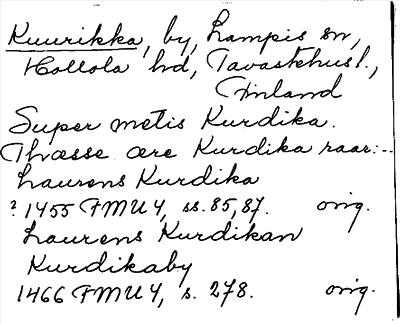 Kuurikka, by, Lampis sn,
Hollola hd, Tavastehusl.,
Finland
Super metis Kurdika.
Thæsse ære Kurdika raar:-
Laurens Kurdika
? 1455 FMU 4, ss. 85, 87. orig.
Laurens Kurdikan
Kurdikaby
1466 FMU 4, s. 278. orig.